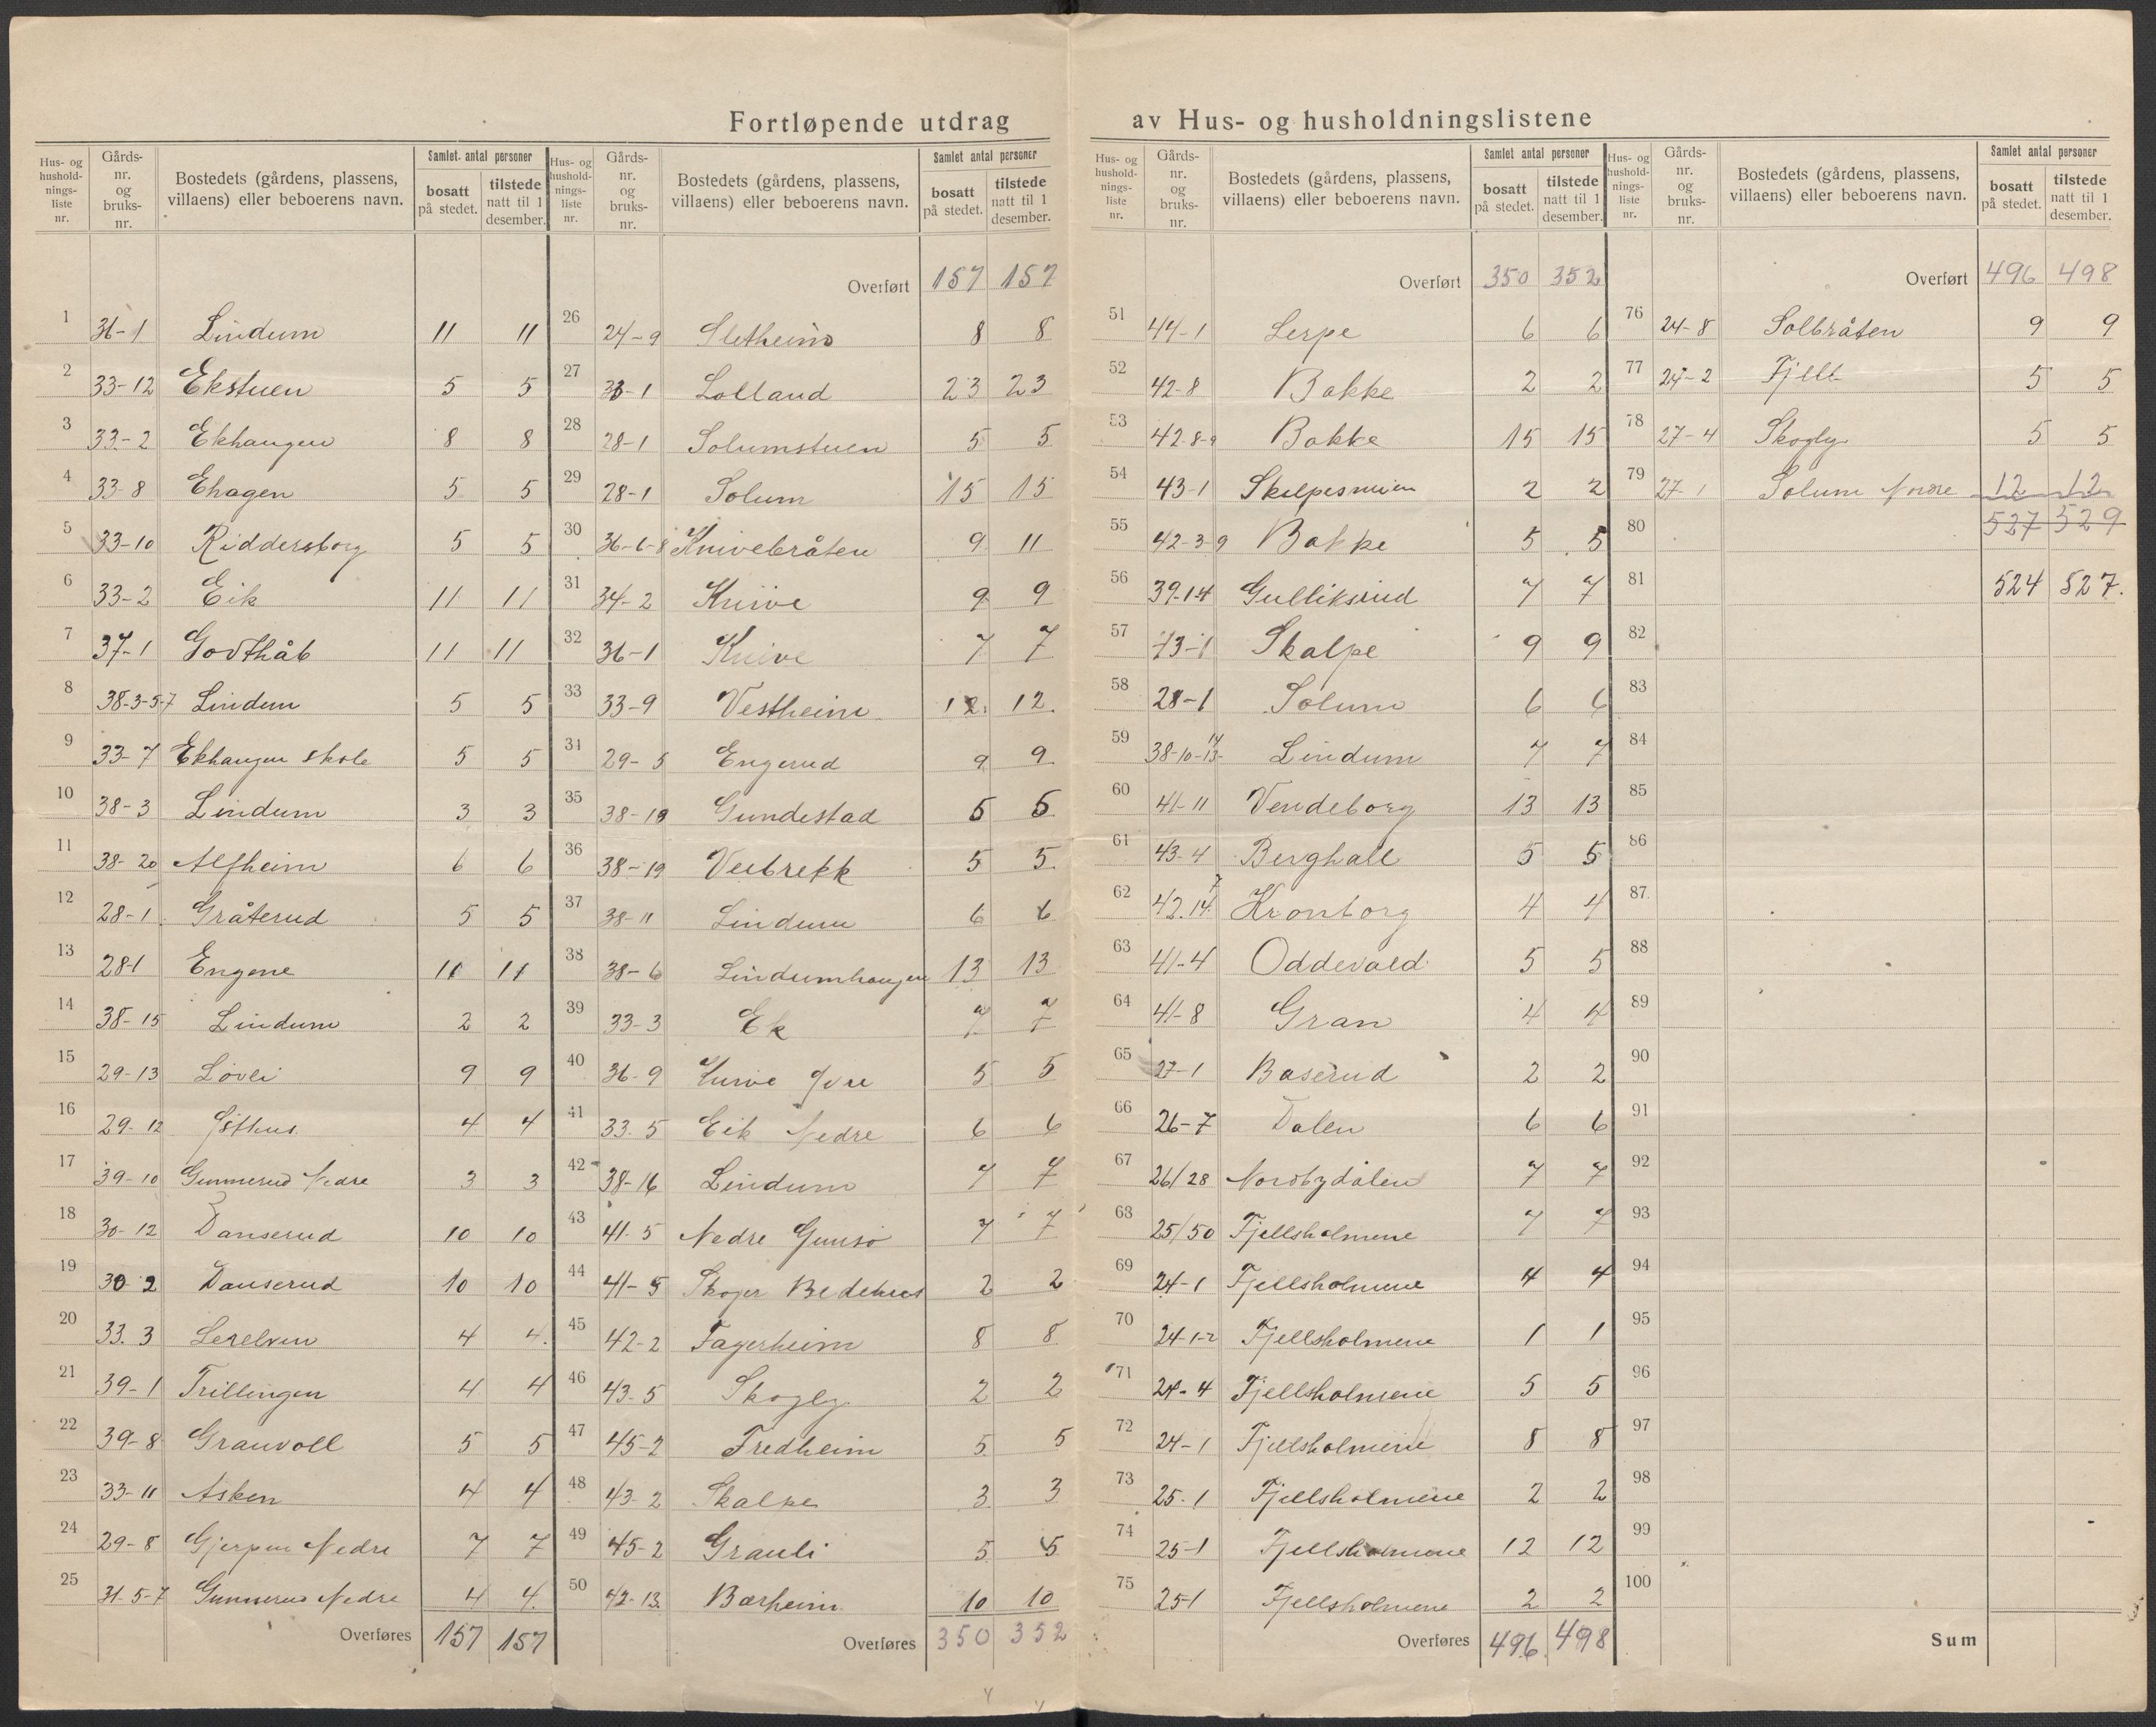 Fortløpende utdrag av Hus- og husholdningslistene
Hus- og husholdnings-liste nr. | Gårds-nr. og bruks-nr. | Bostedets (gårdens, plassens, villaens) eller beboerens navn. | Samlet antal personer | bosatt på stedet. | tilstede natt til 1 desember.
1 31-1 Lindum 11 11
2 33-12 Ekstuen 5 5
3 33-2 Ekhaugen 8 8
4 33-8 Ehagen 5 5
5 33-10 Riddersborg 5 5
6 33-2 Eik 11 11
7 37-1 Godthåb 11 11
8 38-3-5-7 Lindum 5 5
9 33-7 Ekhaugen skole 5 5
10 38-3 Lindum 3 3
11 38-20 Alfheim 6 6
12 28-1 Gråterud 5 5
13 28-1 Engene
14 38-15 Lindum 2 2
15 29-13 Løvli 9 9
16 29-12 4 4
17 39-10 Gunnerud Nedre 3 3
18 30-12 Danserud 10 10
19 30-2 Danserud 10 10
20 33.3 Lerelven 4 4
21 39-1 Trillingen 4 4
22 39-8 Granvoll 5 5
23 33-11 Asken 4 4
24 29-8 Gjerpen Nedre 7 7
25 31-5-7 Gunnerud Nedre 4 4
Overføres 157 157
Overført 157 157
26 24-9 Sletheim 8 8
27 Lolland 23 23
28 28-1 Solumstuen 5 5
29 28-1 Solum 15 15
30 36-6-8 Knivebråten 9 11
31 34-2 Knive 9 9
32 36-1 Knive 7 7
33 33-9 Vestheim 12 12
34 29-5 Engerud 9 9
35 Gundestad 5 5
36 38-19 Veibrekk 5 5
37 38-11 Lindum 6 6
38 38-6 Lindumhaugen 13 13
39 33-3 Ek 7 7
40 36-9 Knive Øvre 5 5
41 33.5 Eik Nedre 6 6
42 38-16 Lindum 7 7
43 41-5 Nedre Gunsø 7 7
44 41-5 Skoger Bedehus 2 2
45 42-2 Fagerheim 8 8
46 43-5 Skogly 2 2
47 45-2 Fredheim 5 5
48 43-2 Skalpe 3 3
49 45-2 Granli 5 5
50 42-13 Bærheim 10 10
Overføres 350 352
Hus- og husholdnings-liste nr. | Gårds-nr. og bruks-nr. | Bostedets (gårdens, plassens, villaens) eller beboerens navn. | Samlet antal personer | bosatt på stedet. | tilstede natt til 1 desember.
Overført 350 352
51 44-1 Lerpe 6 6
52 42-8 Bakke 2 2
53 42-8-9 Bakke 15 15
54 43-1 2 2
55 42-3-9 Bakke 5 5
56 39-14 Gulliksrud 7 7
57 43-1 Skalpe 9 9
58 28-1 Solum 6 6
59 38-10-13-14 Lindum 7 7
60 41-11 Vendeborg 13 13
61 43-4 Berghall 5 5
62 42.14 Kronborg 4 4
63 41-4 Oddevald 5 5
64 41-8 Gran 4 4
65 27-1 Baserud 2 2
66 26-7 Dalen 6 6
67 26/28 Nordbydalen 7 7
68 25/50 Fjellsholmene 7 7
69 24-1 Fjellsholmene 4 4
70 24-1-2 Fjellsholmene 1 1
71 24-4 Fjellsholmene 5 5
72 24-1 Fjellsholmene 8 8
73 25-1 Fjellsholmene 2 2
74 25-1 Fjellsholmene 12 12
75 25-1 Fjellsholmene 2 2
Overføres 496 498
Overført 496 498
76 24-8 Solbråten 9 9
77 24-2 Fjell 5 5
78 27-4 Skogly 5 5
79 27-1 Solum Nordre 12 12
80 527 529
81 524 527.
82
83
84
85
86
87
88
89
90
91
92
93
94
95
96
97
98
99
100
Sum